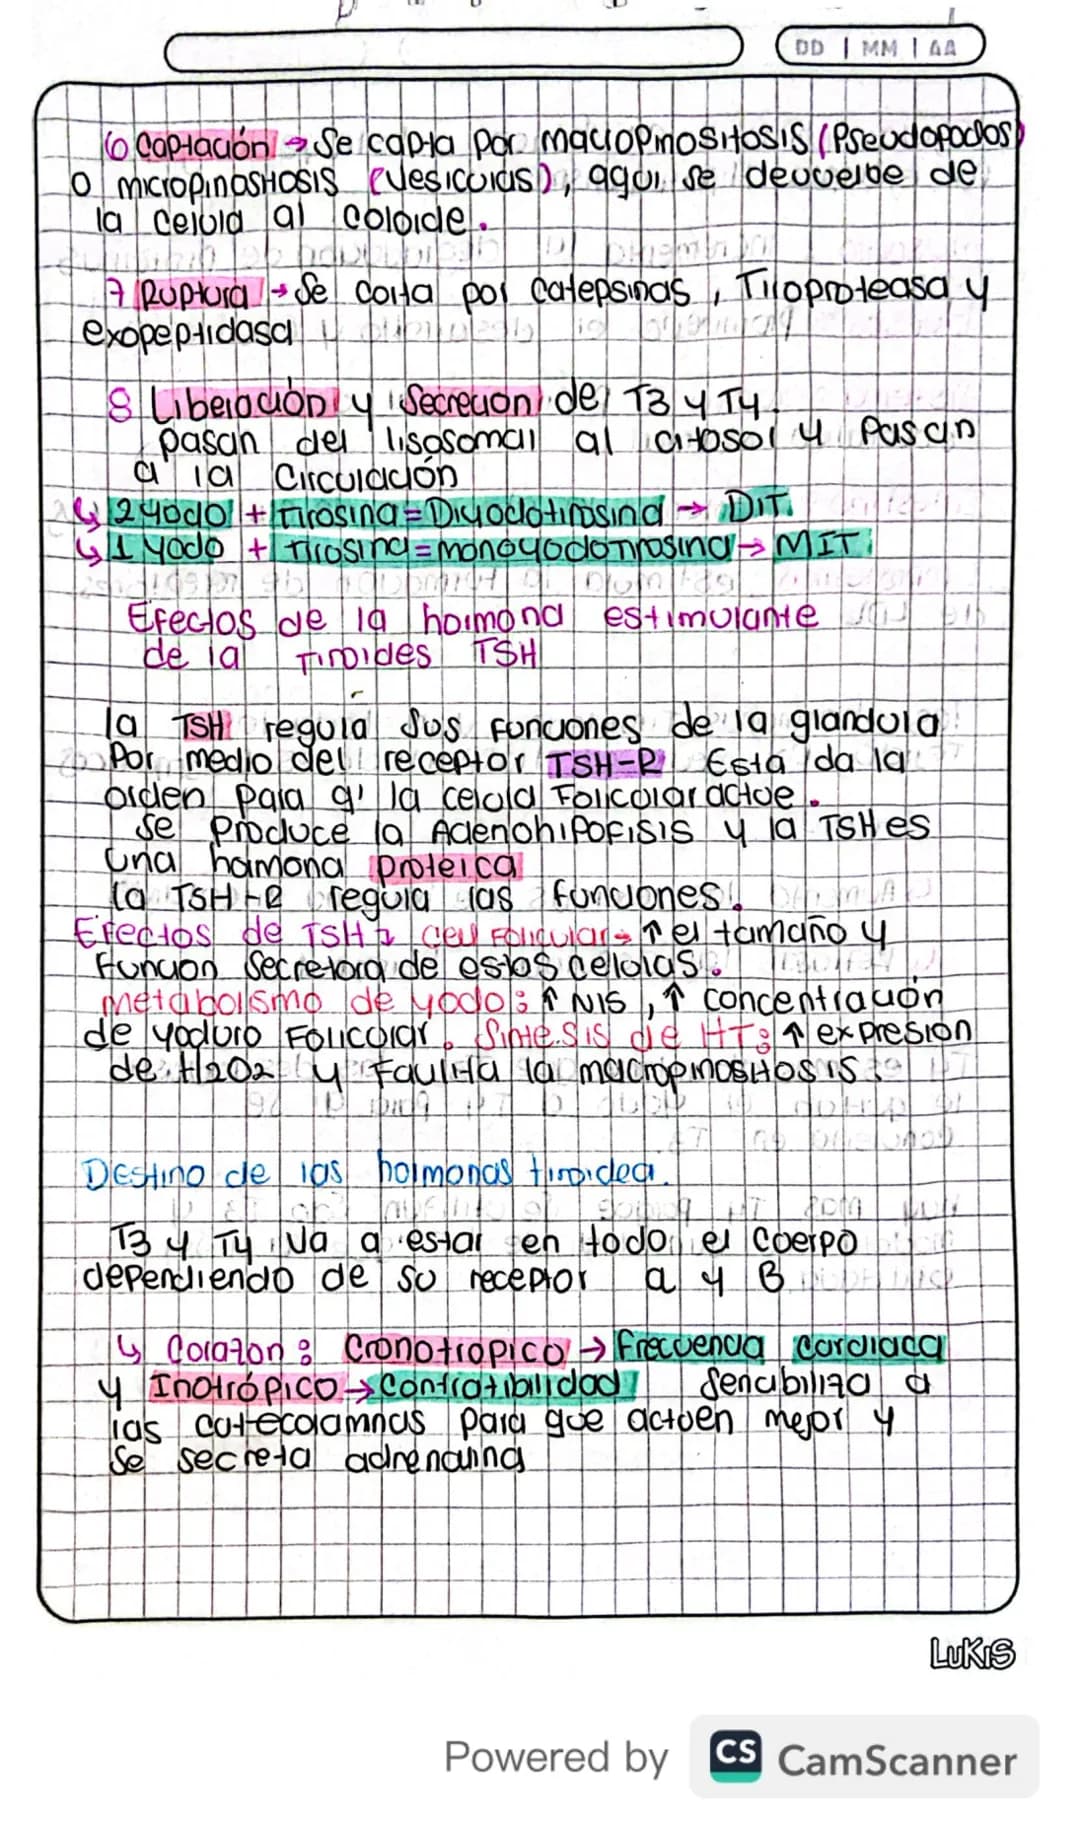 DD | MM | AA
6 Captación → Se capta por macropinositosis (Pseudopodos)
o micropinositosis (vesiculas), aqui se devuelbe de
la celula al coloide.
7 Ruptura → Se corta por catepsinas, Tiroproteasa y
exopeptidasa
8 Liberación y Secrecion de T3 y T4.
pasan del lisosomal al citosol y Pasan
a la Circulación
↳ 2 yodo + tirosina = Diyodotirosina → DIT
↳ 1 yodo + Tirosina = monoyodotirosina → MIT
Efectos de la hormona estimulante
de la Tiroides TSH
la TSH regula sus funciones de la glandula
Por medio del receptor TSH-R Está da la
orden para q' la celula Folicular actue.
Se Produce la Adenohipofisis y la TSH es
una hormona proteica
la TSH-R regula las funciones.
Efectos de TSH: cel Folicular → ↑ el tamaño y
funcion Secretora de estas celulas.
metabolismo de yodo: ↑ NIS, ↑ concentración
de yoduro Folicular. Sintesis de HT: ↑ expresion
de H2O2 y Facilita la macropinositosis.
Destino de las hormonas tiroidea.
T3 y T4 va a estar en todo el cuerpo
dependiendo de su receptor a y B
↳ Corazon: Cronotropico → Frecuencia cardiaca
y Inotrópico → Contratibilidad Sencibiliza a
las catecolamnas para que actuen mejor y
Se secreta adrenanina
LUKIS
Powered by CS CamScanner